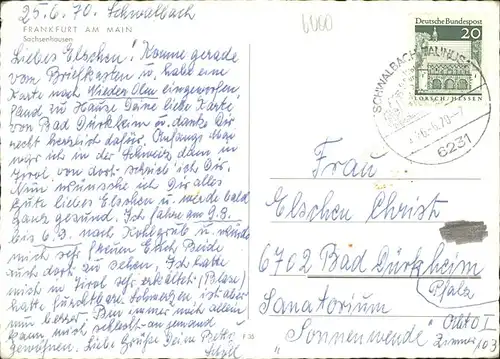 25.6.70. Schwalbach
FRANKFURT AM MAIN
Sachsenhausen
Liebes Elschen! Komme gerade
vom Briefkasten u. habe eine
Karte nach Wieder Olm eingeworfen,
fand zu Hause Deine liebe Karte
von Bad Dürkheim u. danke Dir
recht herzlich dafür. Anfangs Mai
war ich in der Schweiz dann in
Tirol, von dort schrieb ich Dir.
Nun wünsche ich Dir alles
gute liebes Elschen u. werde bald
ganz gesund. Ich fahre am
bis nach Kohlgrub u. würde
mich sehr freuen Euch Beide
auch dort zu sehen. Ich hatte
mich in Tirol sehr erkältet (Blase)
hatte furchtbare Schmerzen, ist aber
nun besser. Den immer noch allein
kann mich schlecht an jemand
gewöhnen. Liebe Grüße Deine
F 35
6400
Deutsche Bundespost
20
LORSCH/HESSEN
SCHWALBACH
26.6.70-7
6231
Frau
Elschen Christ
6702 Bad Dürkheim
Pfalz
Sanatorium
"Sonnenwende"
Zimmer 103